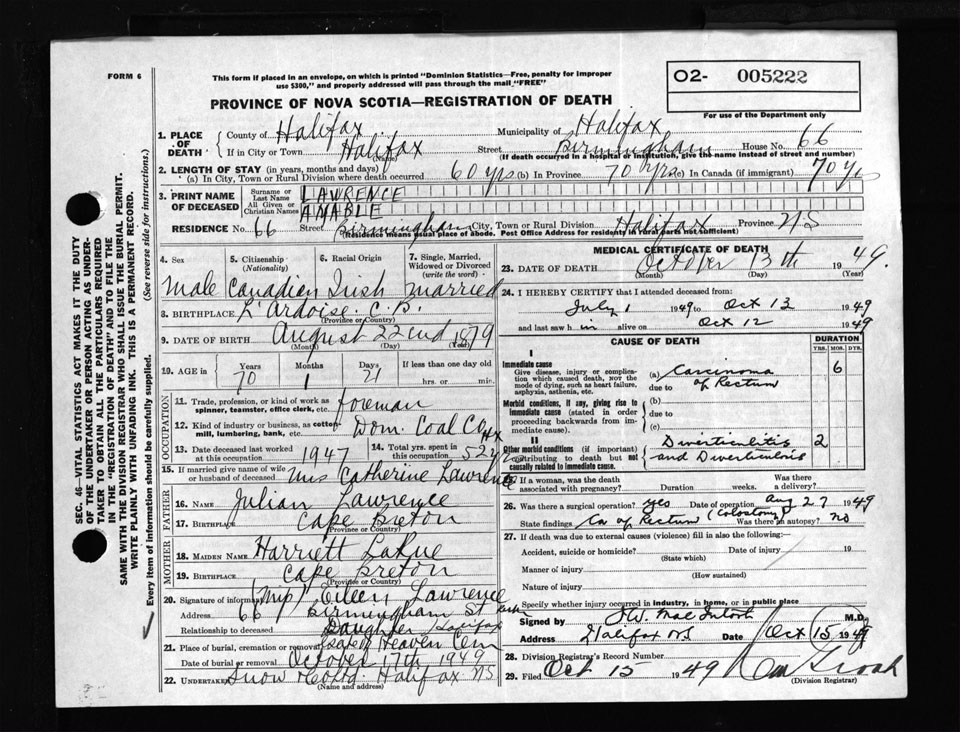 FORM 6
This form if placed in an envelope, on which is printed "Dominion Statistics—Free, penalty for improper
use $300," and properly addressed will pass through the mail "FREE"
O2- 005222
For use of the Department only
PROVINCE OF NOVA SCOTIA—REGISTRATION OF DEATH
1. PLACE OF DEATH
County of Halifax Municipality of Halifax
If in City or Town Halifax Street Birmingham House No. 66
(Name) (If death occurred in a hospital or institution, give the name instead of street and number)
2. LENGTH OF STAY (in years, months and days)
(a) In City, Town or Rural Division where death occurred 60 yrs (b) In Province 70 yrs (c) In Canada (if immigrant) 70 yrs
3. PRINT NAME OF DECEASED
Surname or Last Name LAWRENCE
All Given or Christian Names ANABLE
RESIDENCE No. 66 Street Birmingham City, Town or Rural Division Halifax Province NS
(Residence means usual place of abode. Post Office Address for residents in rural parts not sufficient)
4. Sex
5. Citizenship (Nationality)
6. Racial Origin
7. Single, Married, Widowed or Divorced (write the word)
Male Canadian Irish married
8. BIRTHPLACE L'Ardoise C.B.
(Province or Country)
9. DATE OF BIRTH August 22nd 1879
(Month) (Day) (Year)
10. AGE in Years Months Days If less than one day old
70 1 21 hrs. or min.
OCCUPATION
11. Trade, profession, or kind of work as spinner, teamster, office clerk, etc. foreman
12. Kind of industry or business, as cotton mill, lumbering, bank, etc. Dom. Coal Co Hx
13. Date deceased last worked at this occupation 1947
14. Total yrs. spent in this occupation 52 y
15. If married give name of wife or husband of deceased Mrs Catherine Lawrence
FATHER
16. Name Julian Lawrence
17. Birthplace Cape Breton
(Province or Country)
MOTHER
18. Maiden Name Harriett LaRue
19. Birthplace Cape Breton
(Province or Country)
20. Signature of informant Eileen Lawrence
Address 66 Birmingham St
Relationship to deceased Daughter Halifax
21. Place of burial, cremation or removal Heaven Cem
Date of burial or removal October 17th 1949
22. Undertaker Snow Halifax NS
(Name and address)
MEDICAL CERTIFICATE OF DEATH
23. DATE OF DEATH October 13th 1949.
(Month) (Day) (Year)
24. I HEREBY CERTIFY that I attended deceased from:
July 1 1949 to Oct 13 1949
and last saw h im alive on Oct 12 1949
CAUSE OF DEATH
DURATION
YRS. MOS. DYS.
I
Immediate cause
Give disease, injury or complication which caused death, NOT the mode of dying, such as heart failure, asphyxia, asthenia, etc.
(a) Carcinoma 6
due to of Rectum
Morbid conditions, if any, giving rise to immediate cause (stated in order proceeding backwards from immediate cause).
(b)
due to
(c)
II
Other morbid conditions (if important) contributing to death but not causally related to immediate cause.
Diverticulitis 2
and Diverticulosis
25. If a woman, was the death associated with pregnancy? Duration weeks. Was there a delivery?
26. Was there a surgical operation? yes Date of operation Aug 27 1949
State findings Ca of Rectum (Colostomy) Was there an autopsy? No
27. If death was due to external causes (violence) fill in also the following:—
Accident, suicide or homicide? Date of injury 19
(State which)
Manner of injury
(How sustained)
Nature of injury
Specify whether injury occurred in industry, in home, or in public place
Signed by MacIntosh M.D.
Address Halifax NS Date Oct 15 1949
28. Division Registrar's Record Number
29. Filed Oct 15 1949
(Division Registrar)
SEC. 46—VITAL STATISTICS ACT MAKES IT THE DUTY
OF THE UNDERTAKER OR PERSON ACTING AS UNDERTAKER
TO OBTAIN ALL THE PARTICULARS REQUIRED
IN THE "REGISTRATION OF DEATH" AND TO FILE THE
SAME WITH THE DIVISION REGISTRAR WHO SHALL ISSUE THE BURIAL PERMIT.
WRITE PLAINLY WITH UNFADING INK. THIS IS A PERMANENT RECORD.
Every item of information should be carefully supplied. (See reverse side for instructions.)